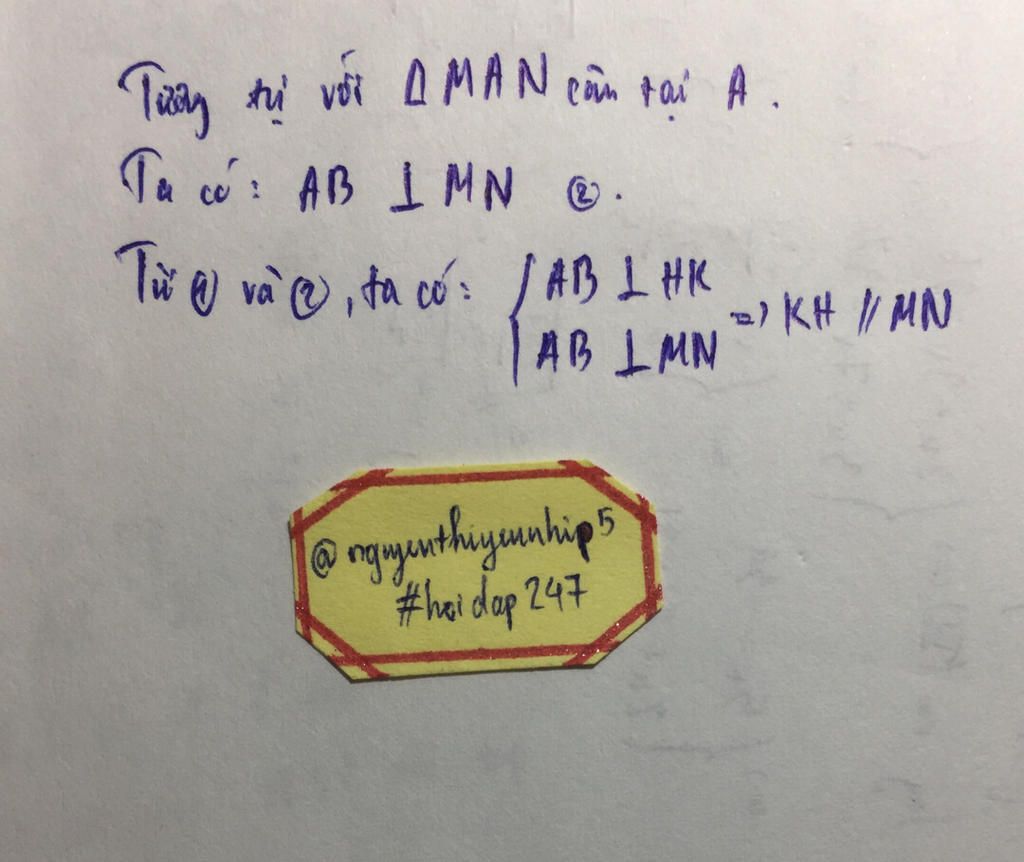 Tương tự với Δ MAN cân tại A.
Ta có: AB ⊥ MN ②.
Từ ① và ②, ta có: { AB ⊥ HK
AB ⊥ MN => KH // MN
@nguyenthiyennhip5
#hoidap247